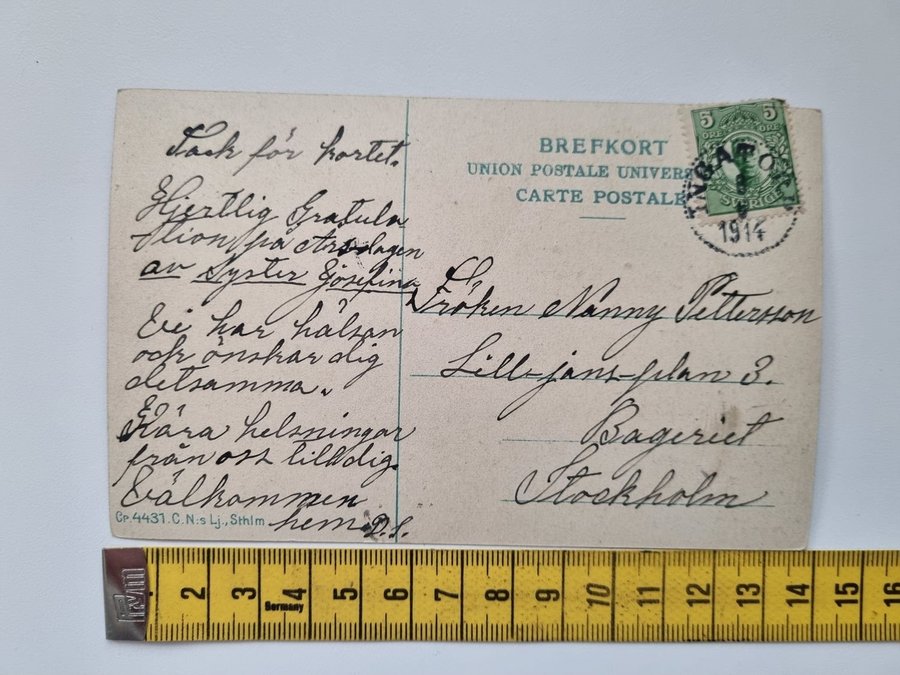 Tack för kortet.
Hjertlig Gratula
tion på Årsdagen
av Syster Josefina
Vi har hälsan
och önskar dig
detsamma.
Kära helsningar
från oss till dig.
Välkommen
hem. D.S.
Cp. 4431. C. N:s Lj., Sthlm
BREFKORT
UNION POSTALE UNIVERS
CARTE POSTALE
5 5
ÖRE ÖRE
SVERIGE
1914
Fröken Nanny Pettersson
Lill-jans-plan 3.
Bageriet
Stockholm
2 3 4 5 6 7 8 9 10 11 12 13 14 15 16
Germany